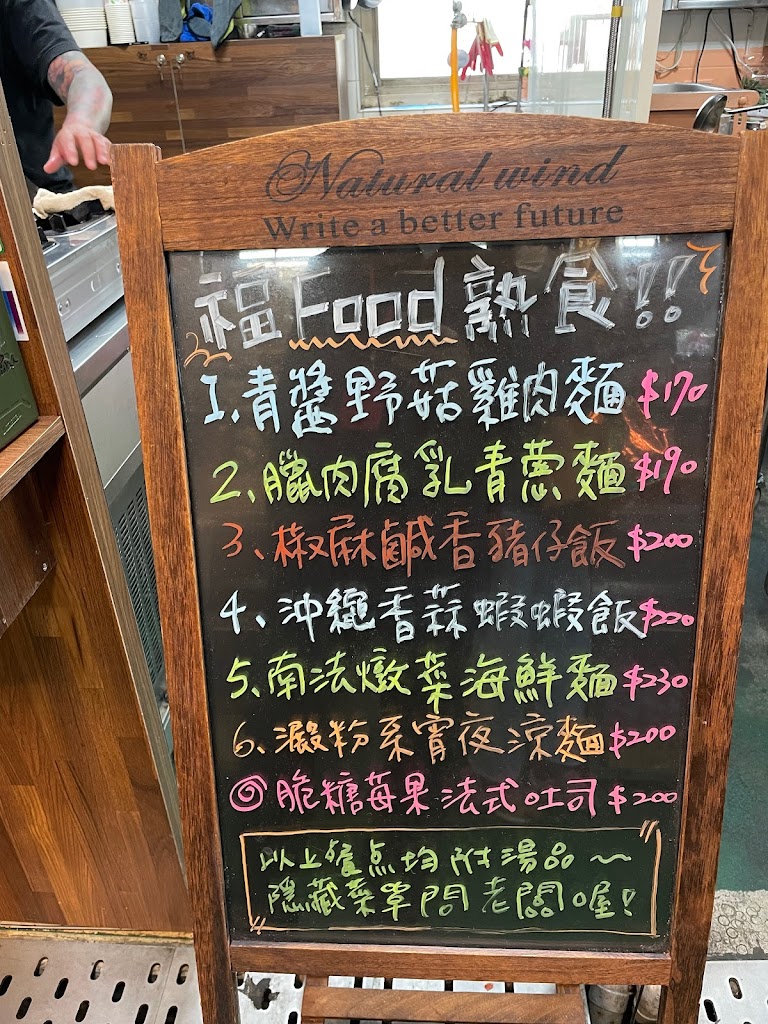 Natural wind
Write a better future
福Food熟食!!
1、青醬野菇雞肉麵 $170
2、臘肉腐乳青蔥麵 $190
3、椒麻鹹香豬仔飯 $200
4、沖繩香蒜蝦蝦飯 $220
5、南法燉菜海鮮麵 $230
6、澱粉系宵夜涼麵 $200
脆糖莓果法式吐司 $200
以上餐點均附湯品～
隱藏菜單問老闆喔!